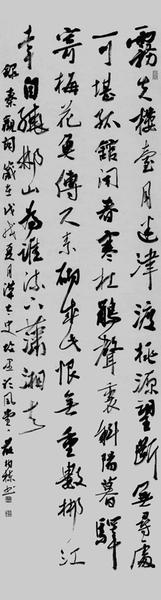 霧失樓臺月迷津渡桃源望斷無尋處
可堪孤館閉春寒杜鵑聲裏斜陽暮驛
寄梅花魚傳尺素砌成此恨無重數郴江
幸自繞郴山為誰流下瀟湘去
錄秦觀詞歲在戊戌夏月